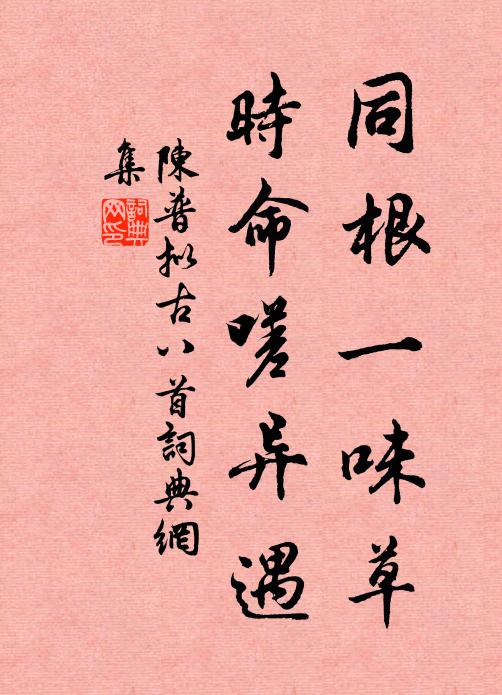 同根一味草
時命嗟异遇
陳普拟古八首詞典網
集
詞典網印